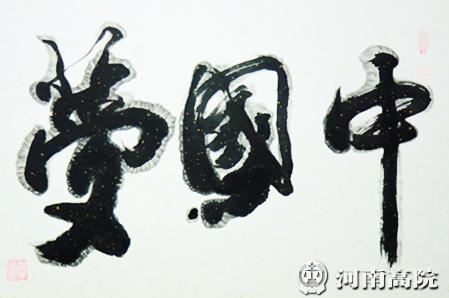 中國夢
河南高院